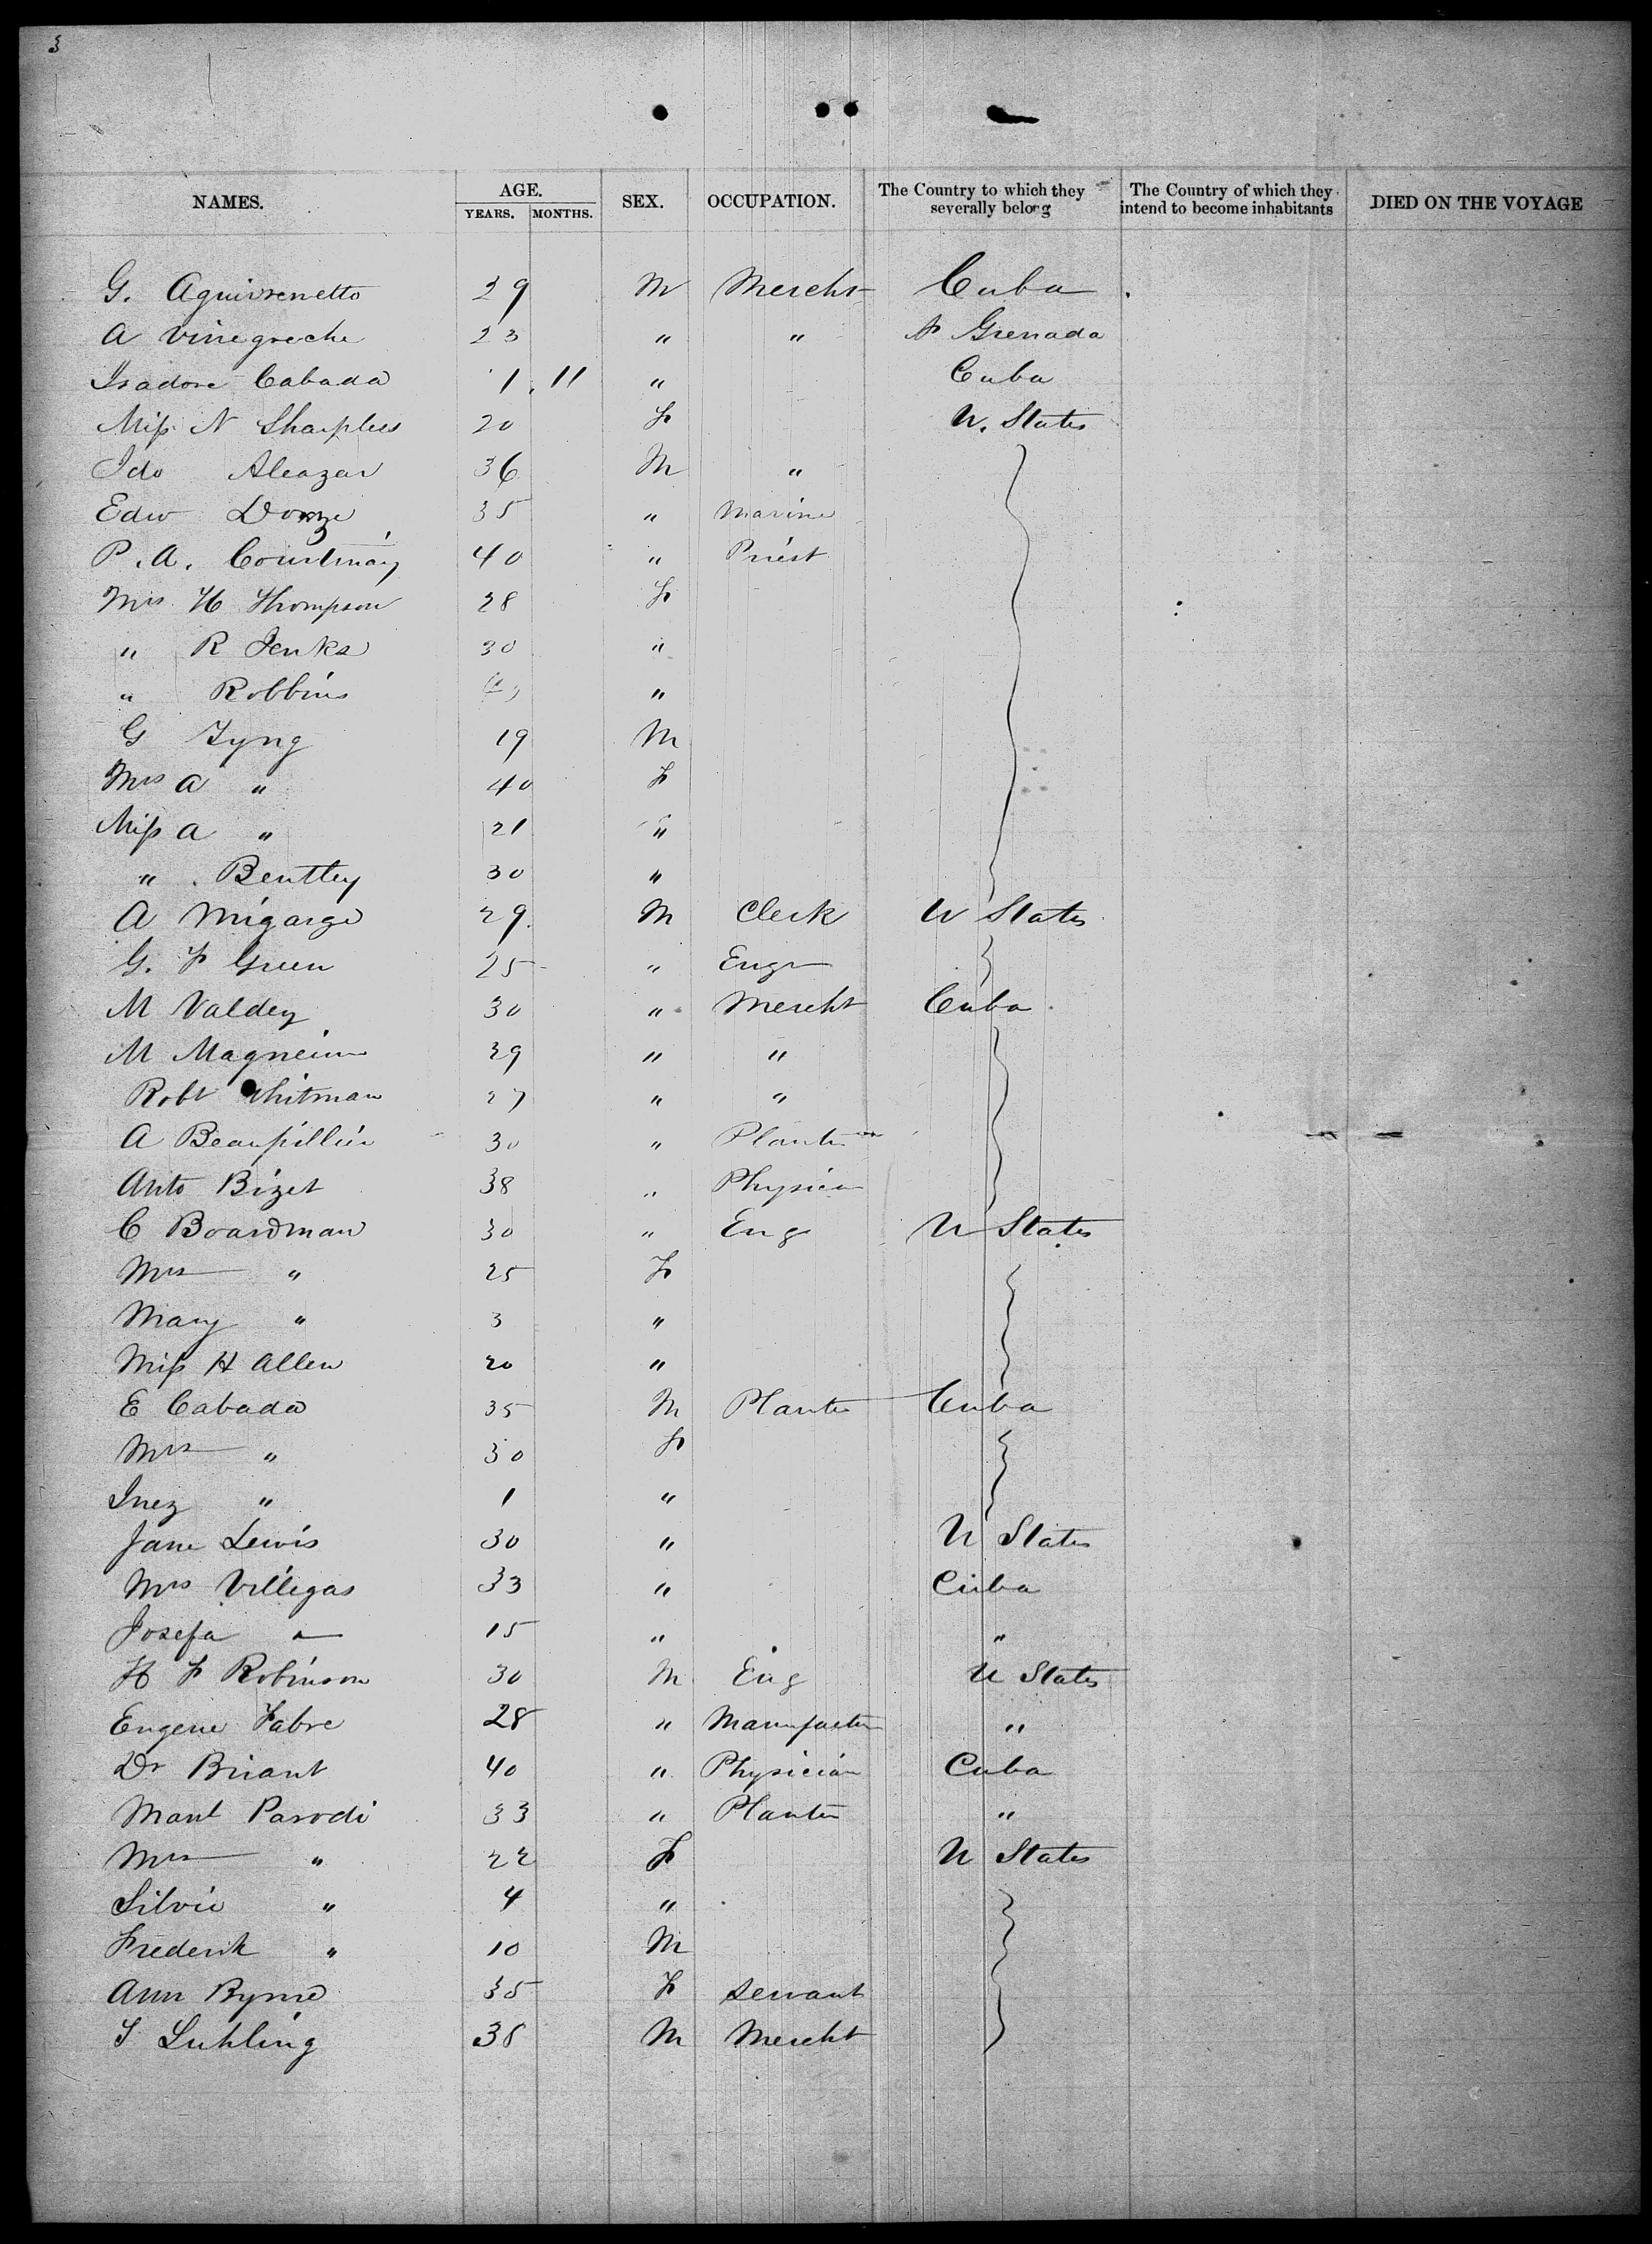 3
NAMES. AGE. YEARS. MONTHS. SEX. OCCUPATION. The Country to which they severally belong The Country of which they intend to become inhabitants DIED ON THE VOYAGE
G. Aguirrenetto 29 M Mercht Cuba
A Vinegreche 23 " " N Grenada
Isadore Cabada 1 11 " Cuba
Miss N Sharpless 20 F U. States
Ido Aleazar 36 M "
Edw 35 " Marine
P. A. Courtmay 40 " Priest
Mrs H Thompson 28 F
" R Jenks 30 "
" Robbins "
G Tyng 19 M
Mrs A " 40 F
Miss A " 21 "
" Bentley 30 "
A Migarge 29 M Clerk U States
G. F Green 25 " Engr
M Valdez 30 " Mercht Cuba
M 29 " "
Robt Whitman 27 " "
A Beaupillier 30 " Planter
Anto Bizet 38 " Physician
C Boardman 30 " Eng U States
Mrs " 25 F
Mary " 3 "
Miss H Allen 20 "
E Cabada 35 M Planter Cuba
Mrs " 30 F
Inez " 1 "
Jane Lewis 30 " U States
Mrs Villegas 33 " Cuba
Josefa " 15 " "
H F Robinson 30 M Eng U States
Eugene Fabre 28 " Manufactur "
Dr Briant 40 " Physician Cuba
Manl Parodi 33 " Planter "
Mrs " 22 F U States
Silvie " 4 "
Frederik " 10 M
Ann Byrne 35 F Servant
S Luhling 38 M Mercht